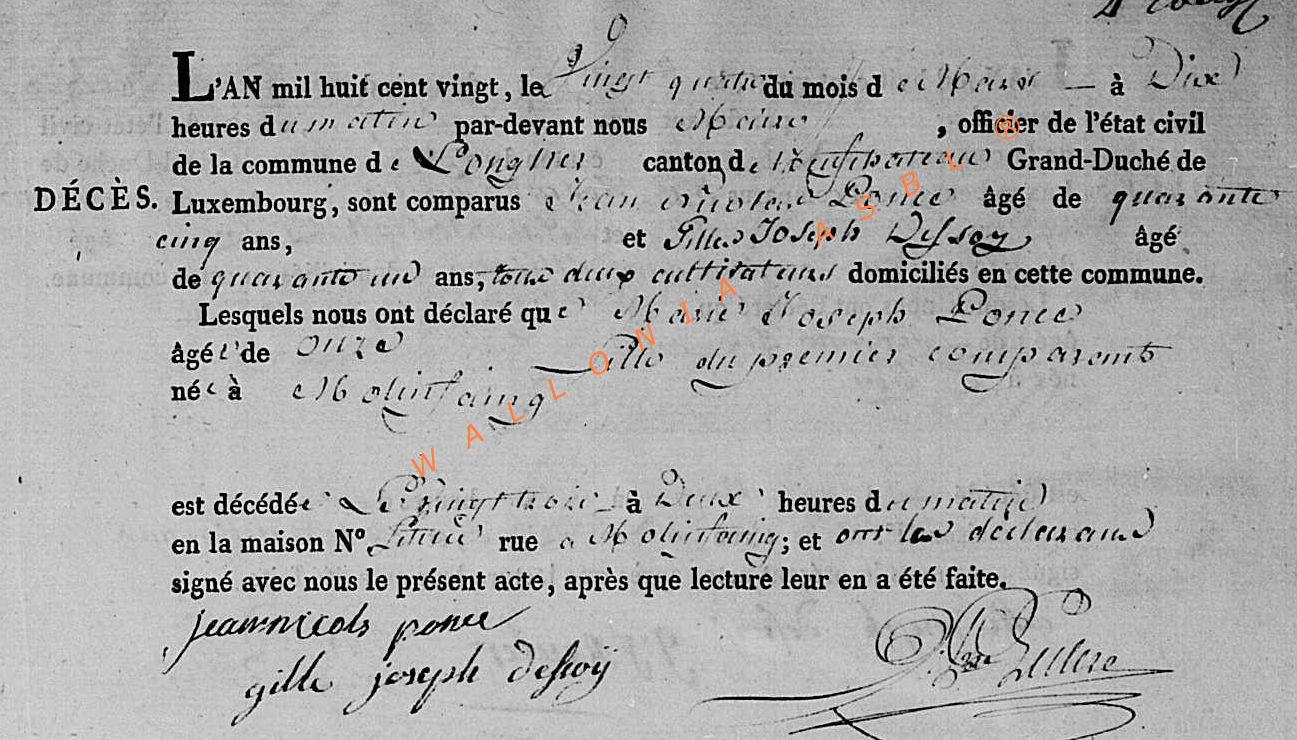 L'AN mil huit cent vingt, le Vingt quatre du mois de Mars — à Dix
heures du matin par-devant nous Maire, officier de l'état civil
de la commune de Longlier canton de Neufchateau Grand-Duché de
DÉCÈS. Luxembourg, sont comparus Jean Nicolas Ponce âgé de quarante
cinq ans, et Gilles Joseph Dessoy âgé
de quarante un ans, tous deux cultivateurs domiciliés en cette commune.
Lesquels nous ont déclaré que Marie Joseph Ponce
âgée de onze fille du premier comparant
née à Molinfaing
est décédée Le vingt trois à Deux heures du matin
en la maison N° située rue a Molinfaing; et ont les déclarans
signé avec nous le présent acte, après que lecture leur en a été faite.
jeannicols ponce
gille joseph dessoÿ
Leclere
WALLONIA ASBL ®